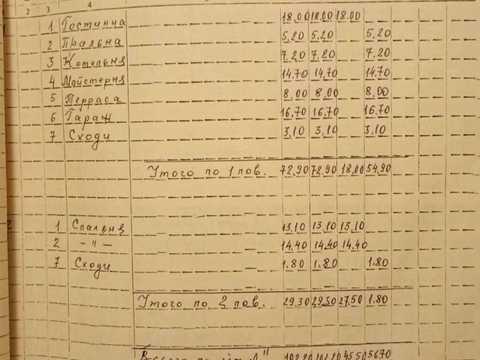 2 3 4
1 Гостинна 18.00 18.00 18.00
2 Пральня 5,20 5,20 5,20
3 Котельня 7.20 7.20 7.20
4 Майстерня 14.70 14,70 14.70
5 Терраса 8.00 8.00 8.00
6 Гараж 16.70 16.70 16.70
7 Сходи 3,10 3,10 3.10
Итого по 1 пов. 72.90 72,90 18.00 54,90
1 Спальня 13.10 13,10 13,10
2 -"- 14.40 14,40 14.40
7 Сходи 1.80 1.80 1.80
Итого по 2 пов. 29.30 29.30 27.50 1.80
45.50 56.70